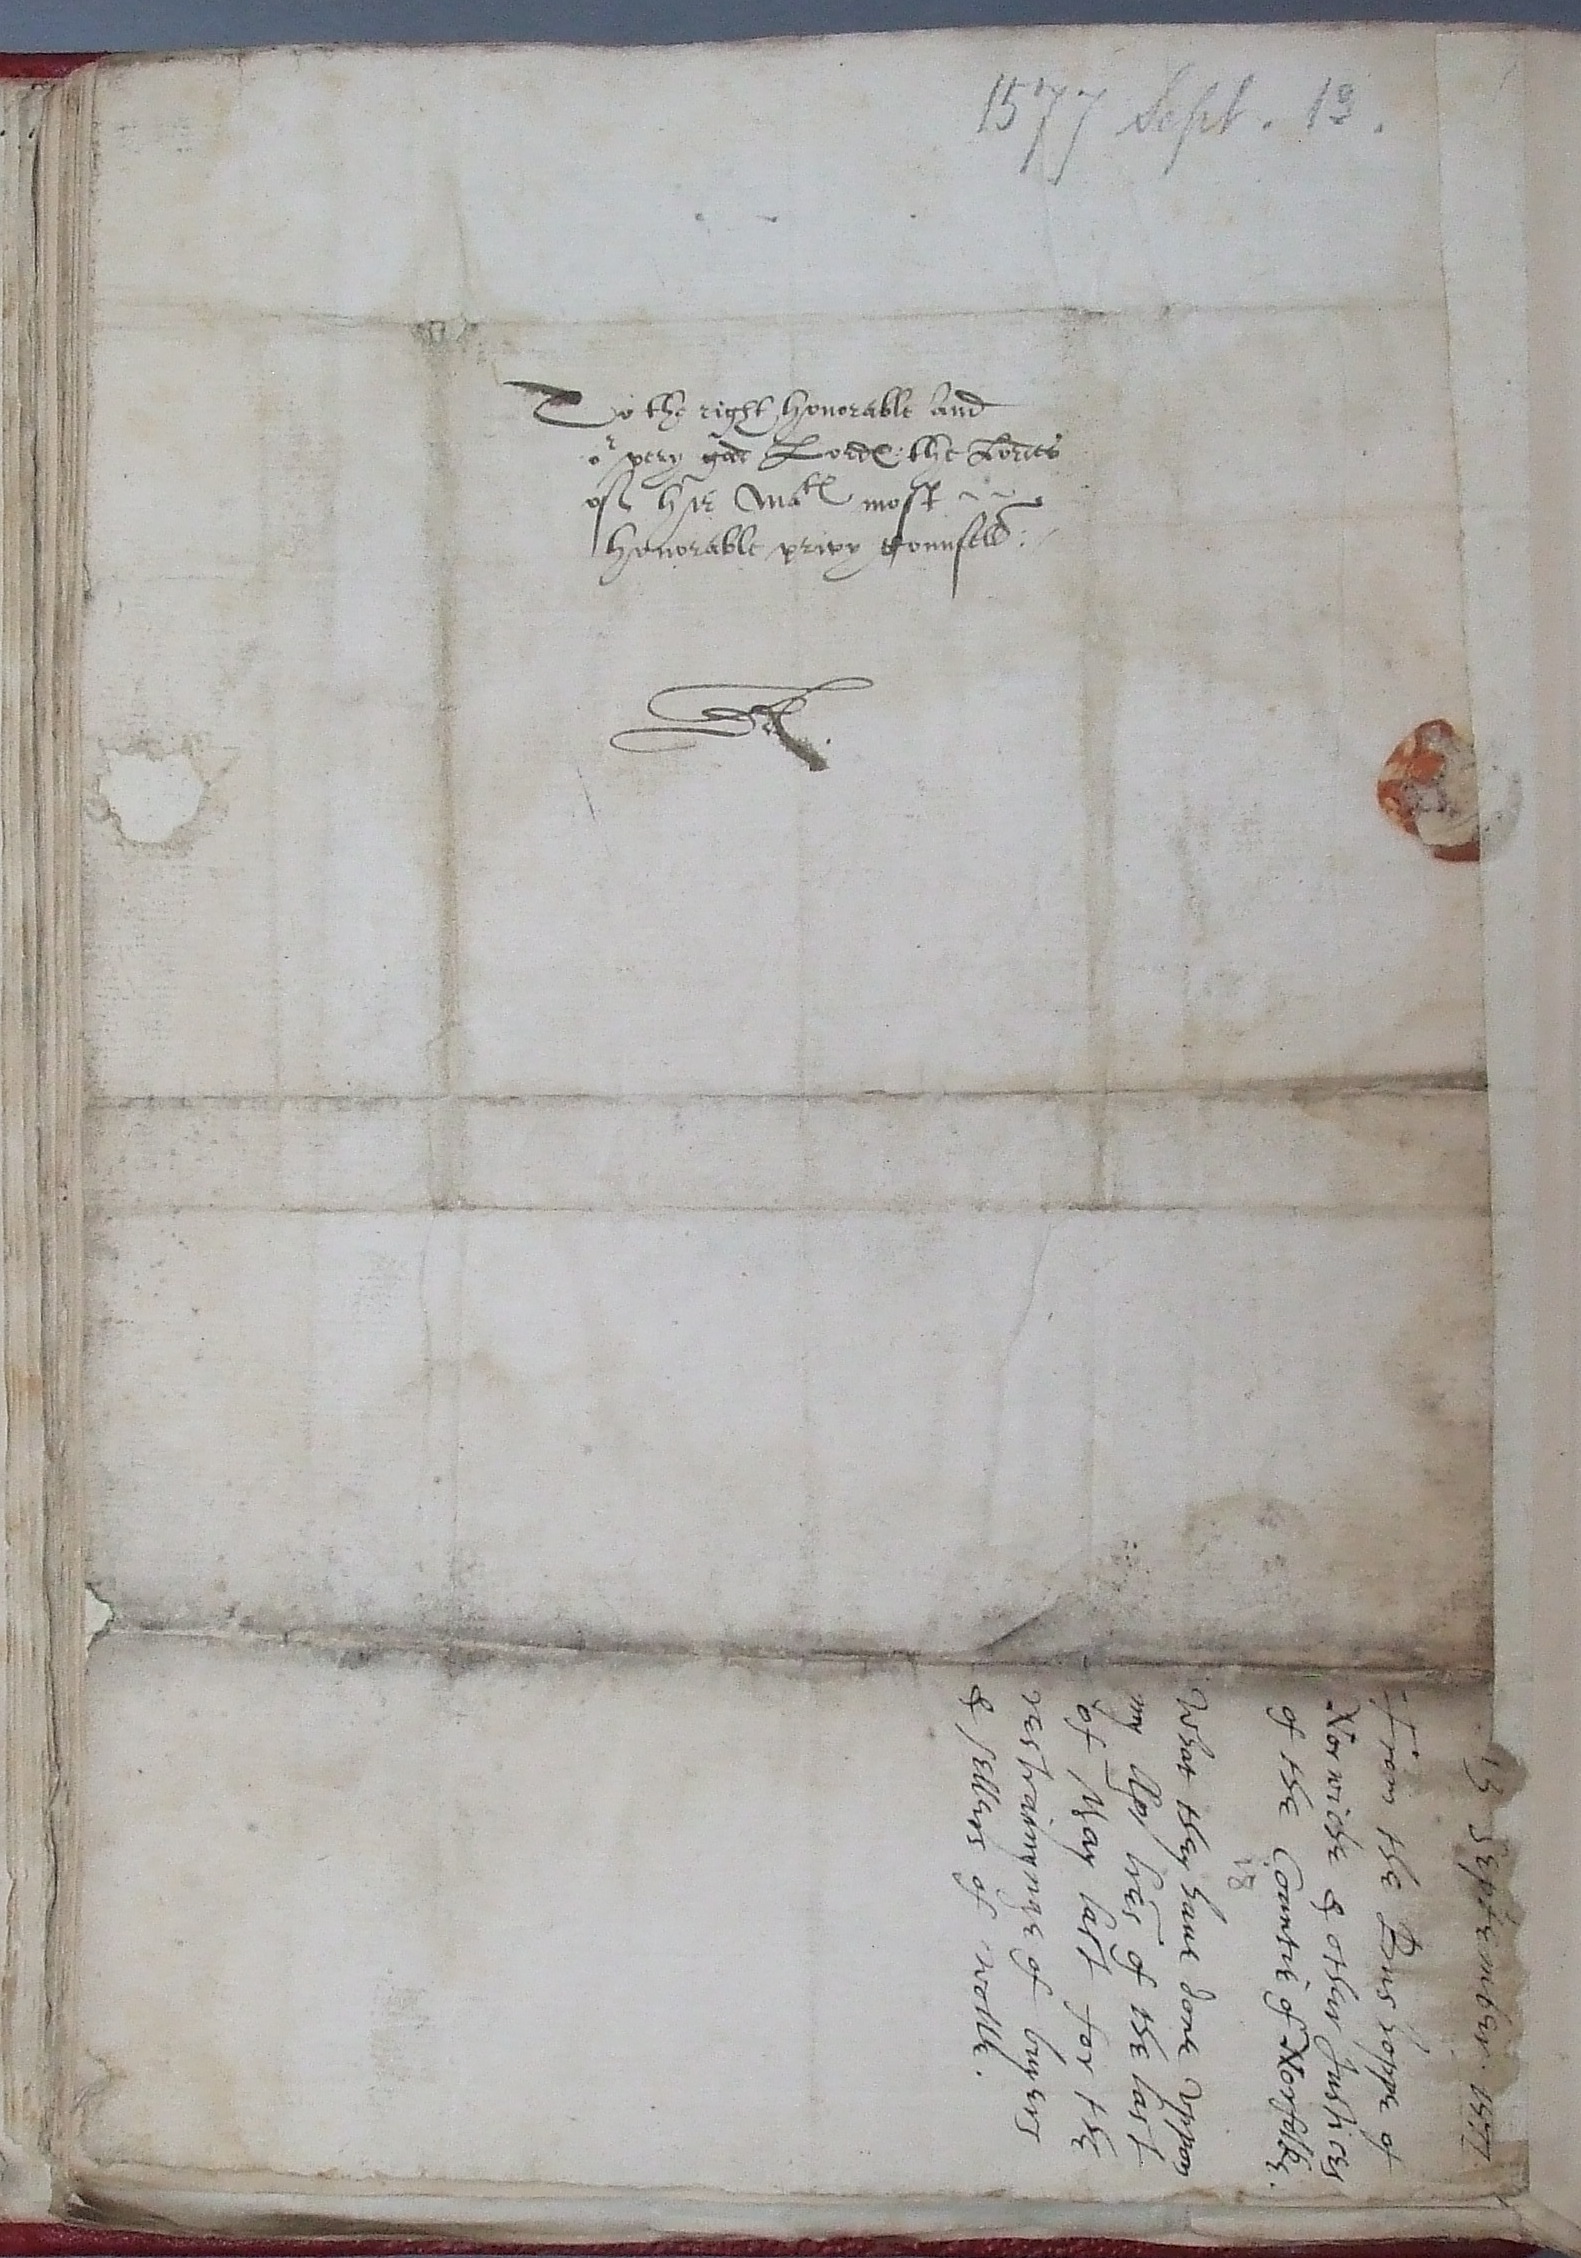 1577 Sept. 13.
To the right honorable and
or very good Lordes: the Lordes
of hir Matis most
honorable privy Counsell:
13 September. 1577.
From the Busshoppe of
Norwiche & other Justices
of the Countie of Norfolke.
18
What they haue done vppon
my llps lres of the last
of May last for the
restraynynge of buyers
& sellers of wolle.